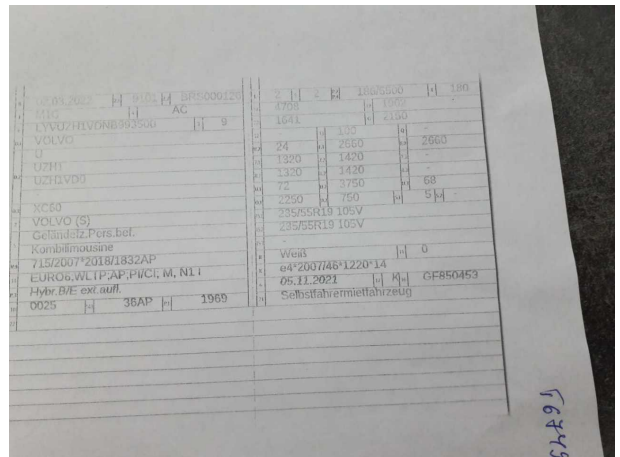 02.03.2022 9101 BRS000126
M1G AC
LYVUZH1VDNB993500 9
VOLVO
U
UZH1
UZH1VD0
XC60
VOLVO (S)
Geländefz.Pers.bef.
Kombilimousine
715/2007*2018/1832AP
EURO6;WLTP;AP;PI/CI; M, N1 I
Hybr.B/E ext.aufl.
0025 36AP 1969
2 2 186/5500 180
4708 1902
1641 2150
- 100 -
24 2660 2660
1320 1420 -
1320 1420 -
72 3750 68
2250 750 5
235/55R19 105V
235/55R19 105V
-
Weiß 0
e4*2007/46*1220*14
05.11.2021 K GF850453
Selbstfahrermietfahrzeug